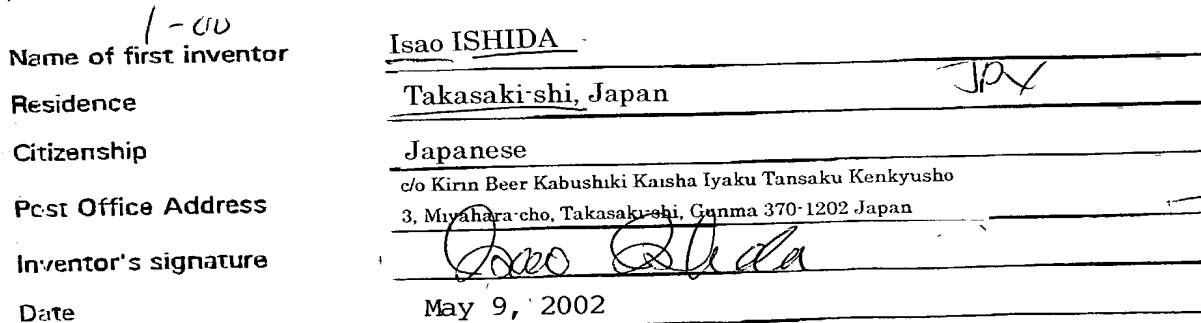 1-00
Name of first inventor Isao ISHIDA
Residence Takasaki-shi, Japan JPX
Citizenship Japanese
c/o Kirin Beer Kabushiki Kaisha Iyaku Tansaku Kenkyusho
Post Office Address 3, Miyahara-cho, Takasaki-shi, Gunma 370-1202 Japan
Inventor's signature Isao Ishida
Date May 9, 2002